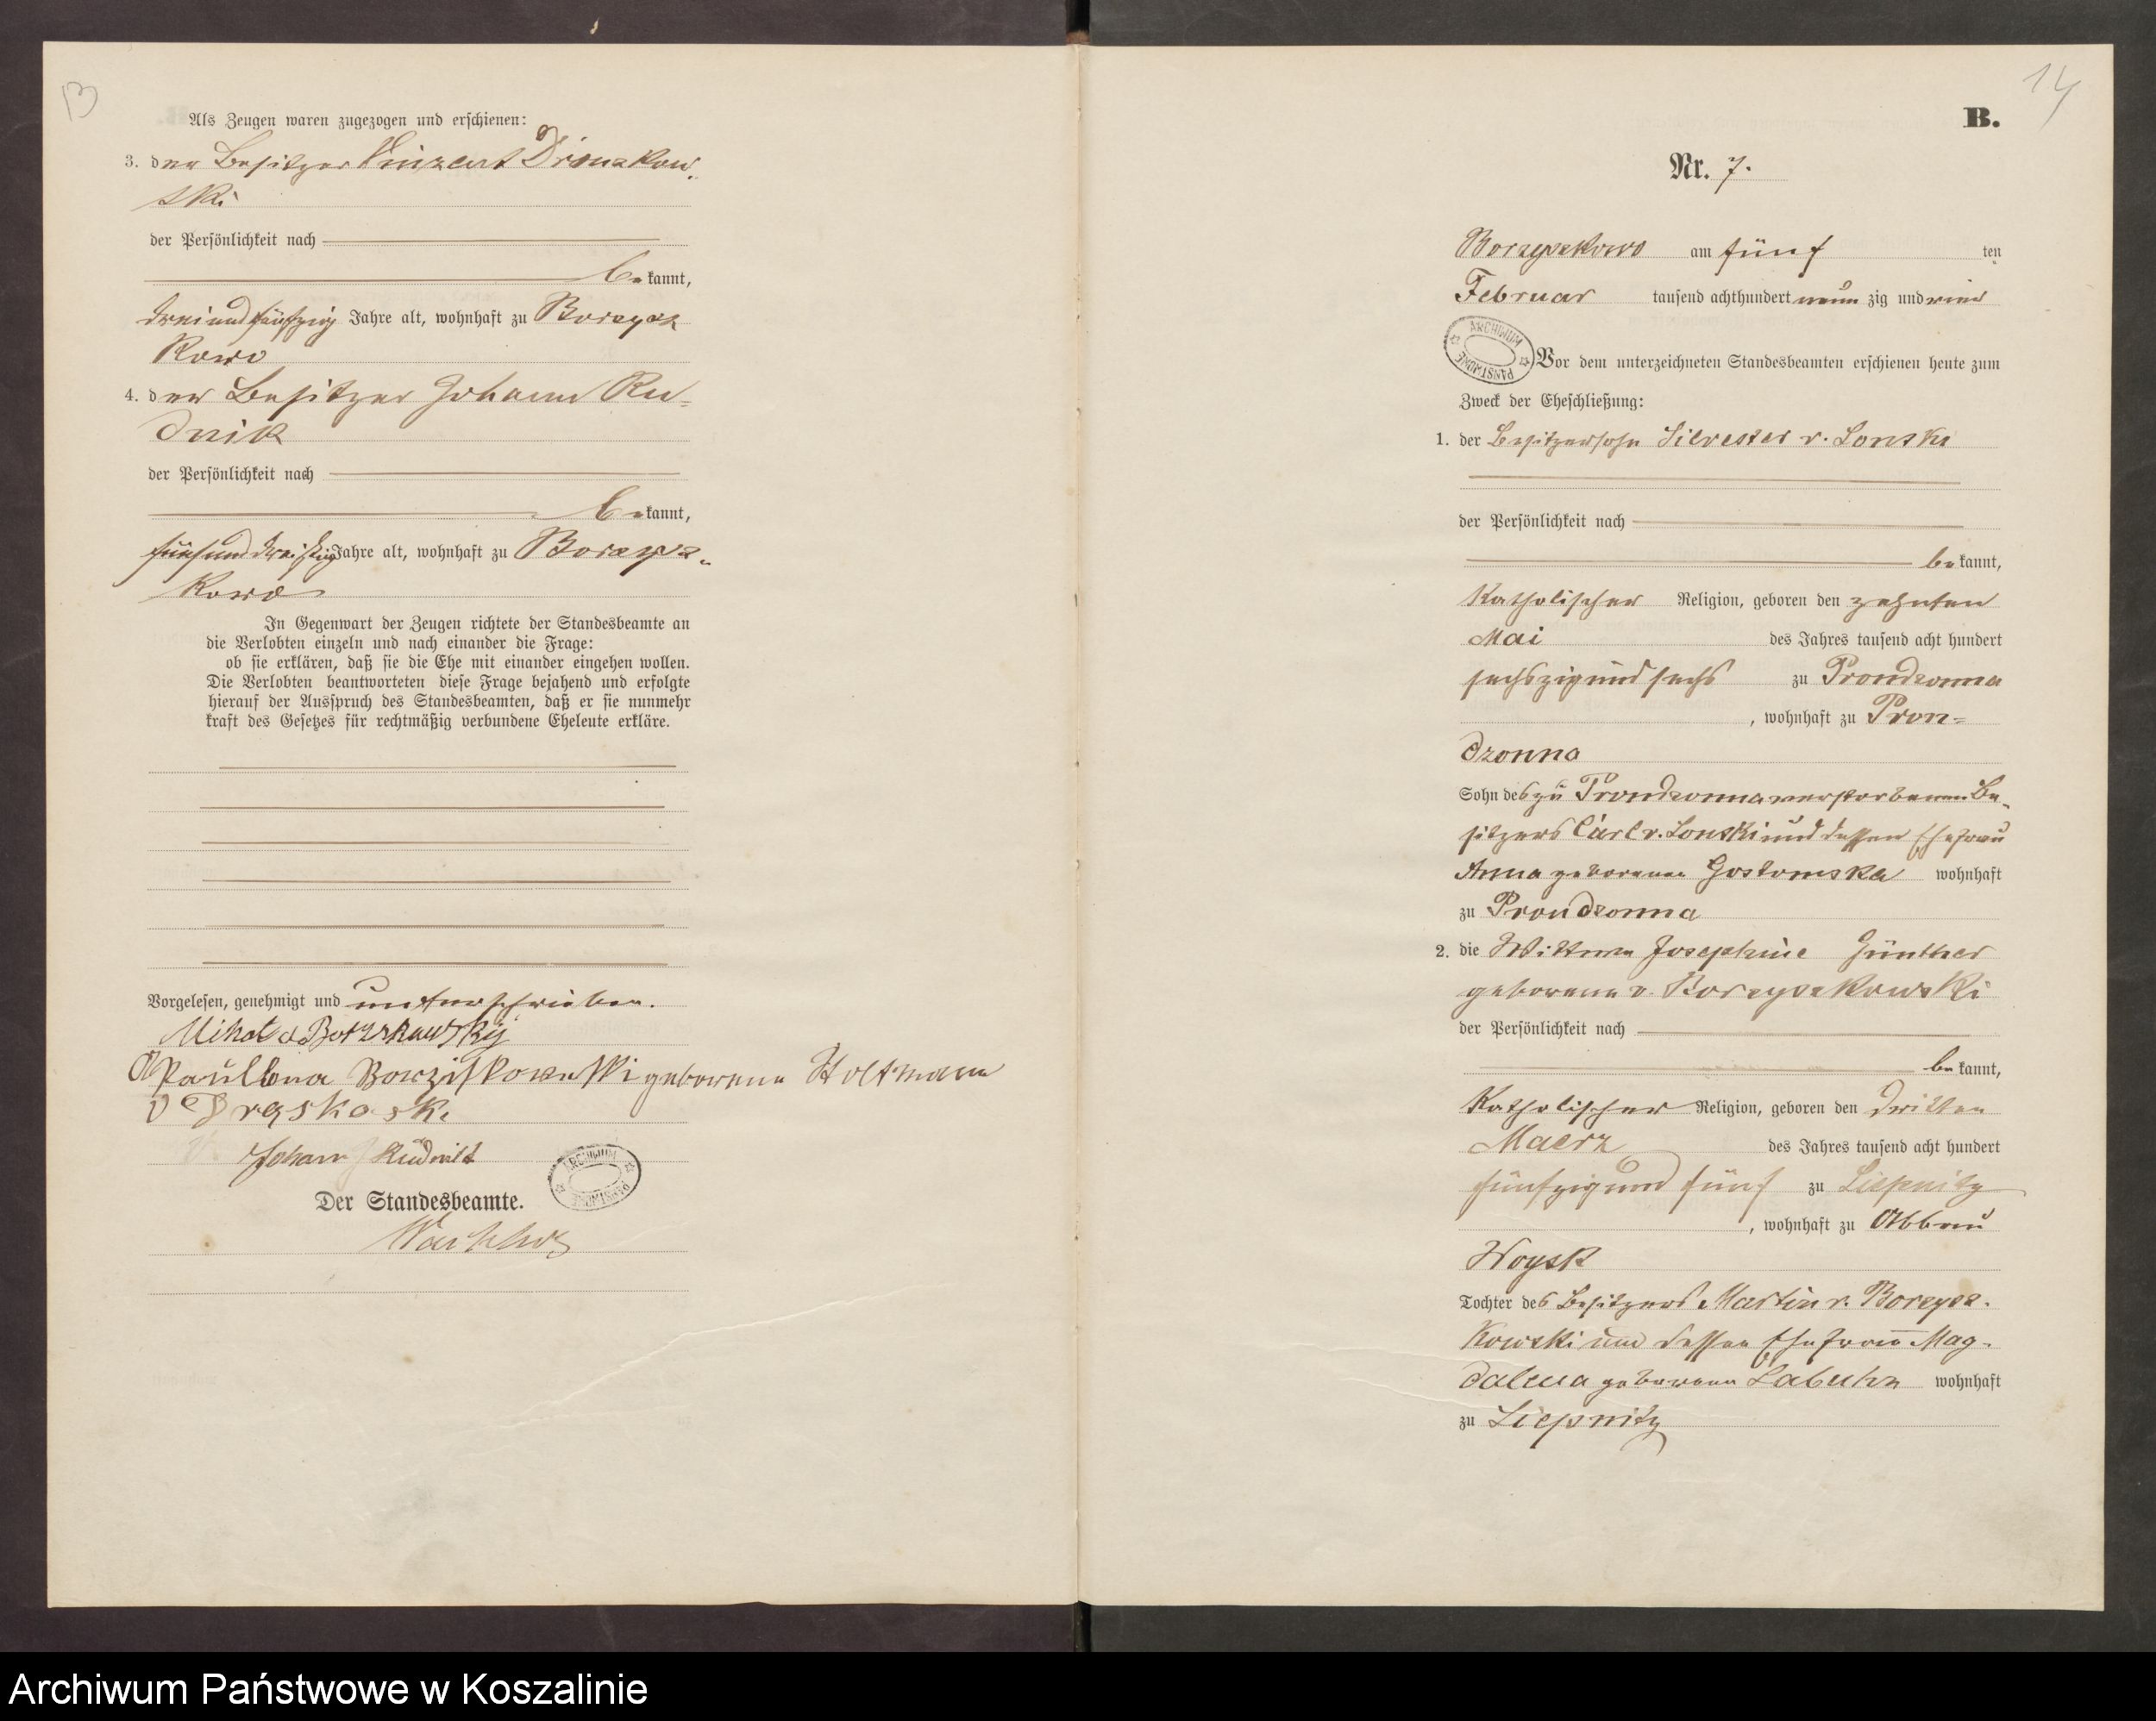 13
Als Zeugen waren zugezogen und erschienen:
3. der Besitzer Vinzent Drzonskow-
ski
der Persönlichkeit nach
bekannt,
dreiundfünfzig Jahre alt, wohnhaft zu Borzysz
kowo
4. der Besitzer Johann Ru-
dnik
der Persönlichkeit nach
bekannt,
fünfunddreißig Jahre alt, wohnhaft zu Borzysz-
kowo
In Gegenwart der Zeugen richtete der Standesbeamte an
die Verlobten einzeln und nach einander die Frage:
ob sie erklären, daß sie die Ehe mit einander eingehen wollen.
Die Verlobten beantworteten diese Frage bejahend und erfolgte
hierauf der Ausspruch des Standesbeamten, daß er sie nunmehr
kraft des Gesetzes für rechtmäßig verbundene Eheleute erkläre.
Vorgelesen, genehmigt und unterschrieben.
geborene Holtmann
Johann Rudnik
ARCHIWUM PAŃSTWOWE
Der Standesbeamte.
14
B.
Nr. 7.
Borzyszkowo am fünf ten
Februar tausend achthundert neun zig und vier
ARCHIWUM PAŃSTWOWE
Vor dem unterzeichneten Standesbeamten erschienen heute zum
Zweck der Eheschließung:
1. der Besitzersohn Silvester v. Lonski
der Persönlichkeit nach
bekannt,
Katholischer Religion, geboren den zehnten
Mai des Jahres tausend acht hundert
sechszig und sechs zu Prondzonna
, wohnhaft zu Pron-
dzonna
Sohn des zu Prondzonna verstorbenen Be-
sitzers Carl v. Lonski und dessen Ehefrau
Anna geborenen Gostomska wohnhaft
zu Prondzonna
2. die Wittwe Josephine Günther
geborene v. Borzyszkowski
der Persönlichkeit nach
bekannt,
Katholischer Religion, geboren den dritten
Maerz des Jahres tausend acht hundert
fünfzig und fünf zu Liepnitz
, wohnhaft zu Abbau
Woysk
Tochter des Besitzers Martin v. Borzysz-
kowski und dessen Ehefrau Mag-
dalena geborene Labuhn wohnhaft
zu Liepnitz
Archiwum Państwowe w Koszalinie